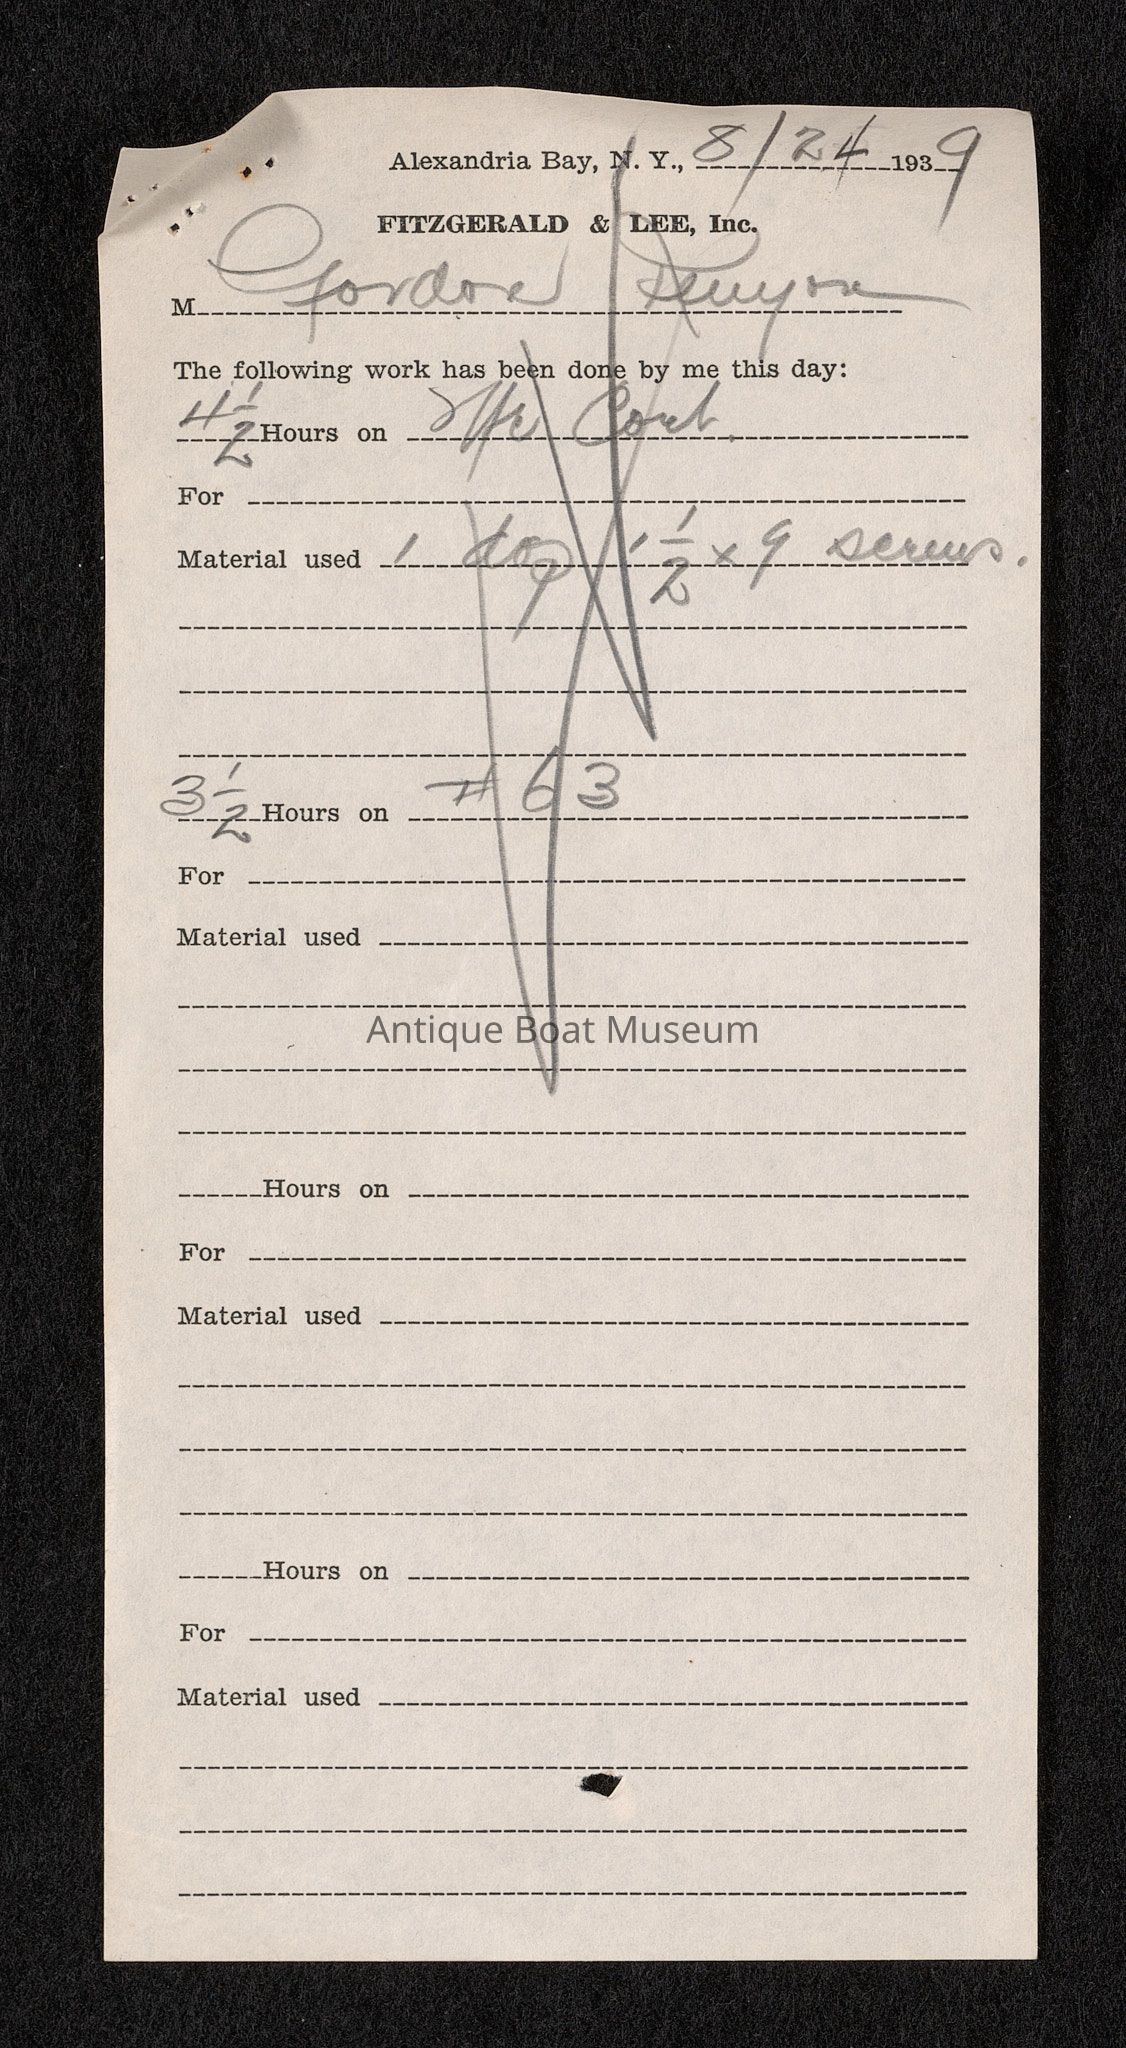 Alexandria Bay, N. Y., 8/24 1939
FITZGERALD & LEE, Inc.
M Gordon Kenyon
The following work has been done by me this day:
4 1/2 Hours on Mc Cort.
For
Material used 1 doz 1 1/2 x 9 screws.
3 1/2 Hours on # 63
For
Material used
Antique Boat Museum
Hours on
For
Material used
Hours on
For
Material used